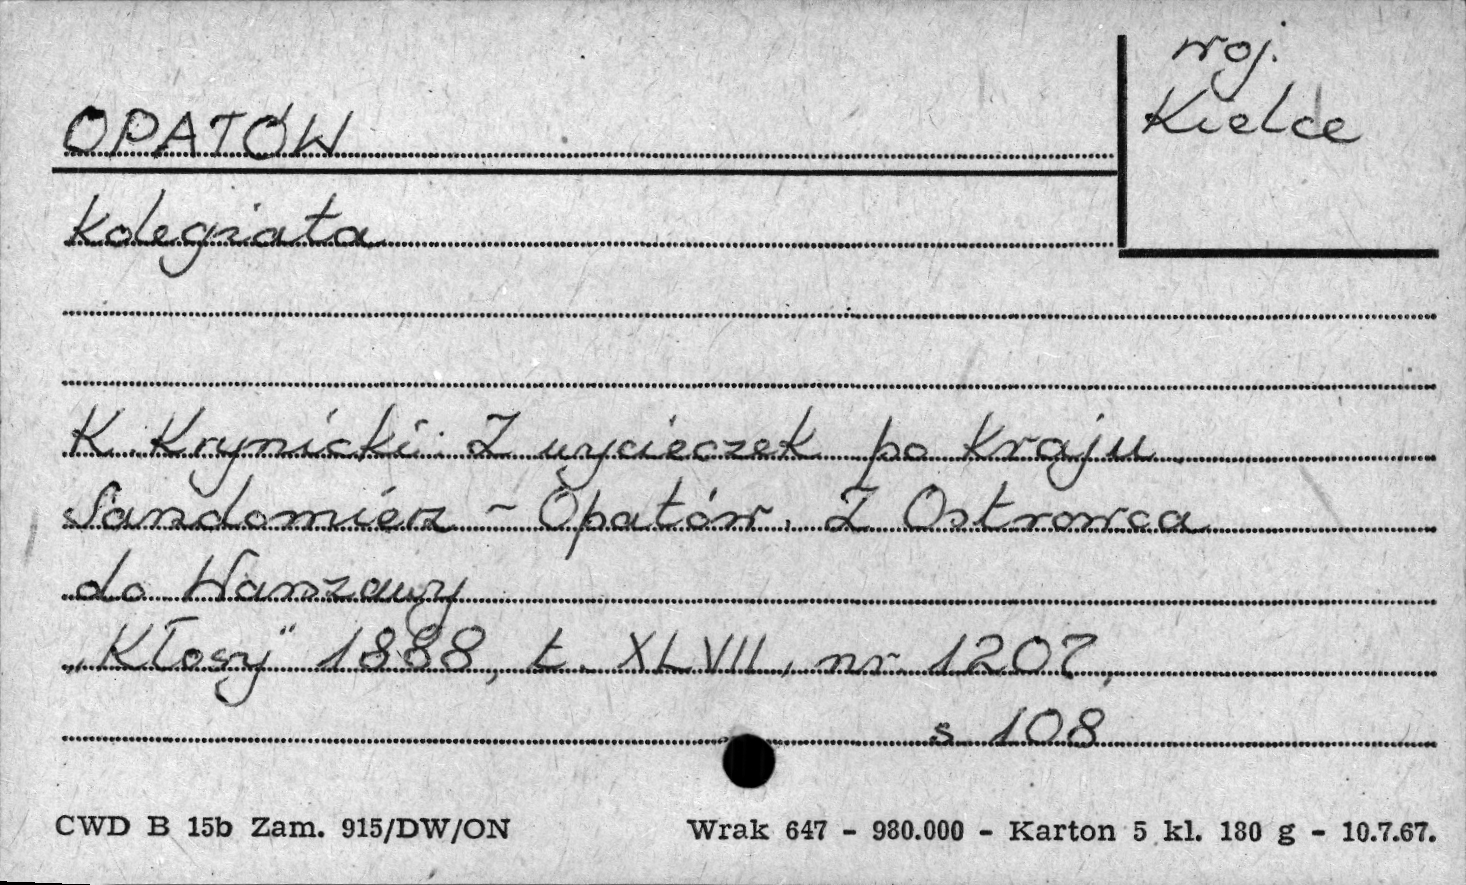 woj.
Kielce
OPATÓW
Kolegiata
K. Krynicki: Z wycieczek po kraju
Sandomierz - Opatów. Z Ostrowca
do Warszawy
„Kłosy" 1888, t. XLVII, nr. 1207,
s 108
CWD B 15b Zam. 915/DW/ON
Wrak 647 - 980.000 - Karton 5 kl. 180 g - 10.7.67.